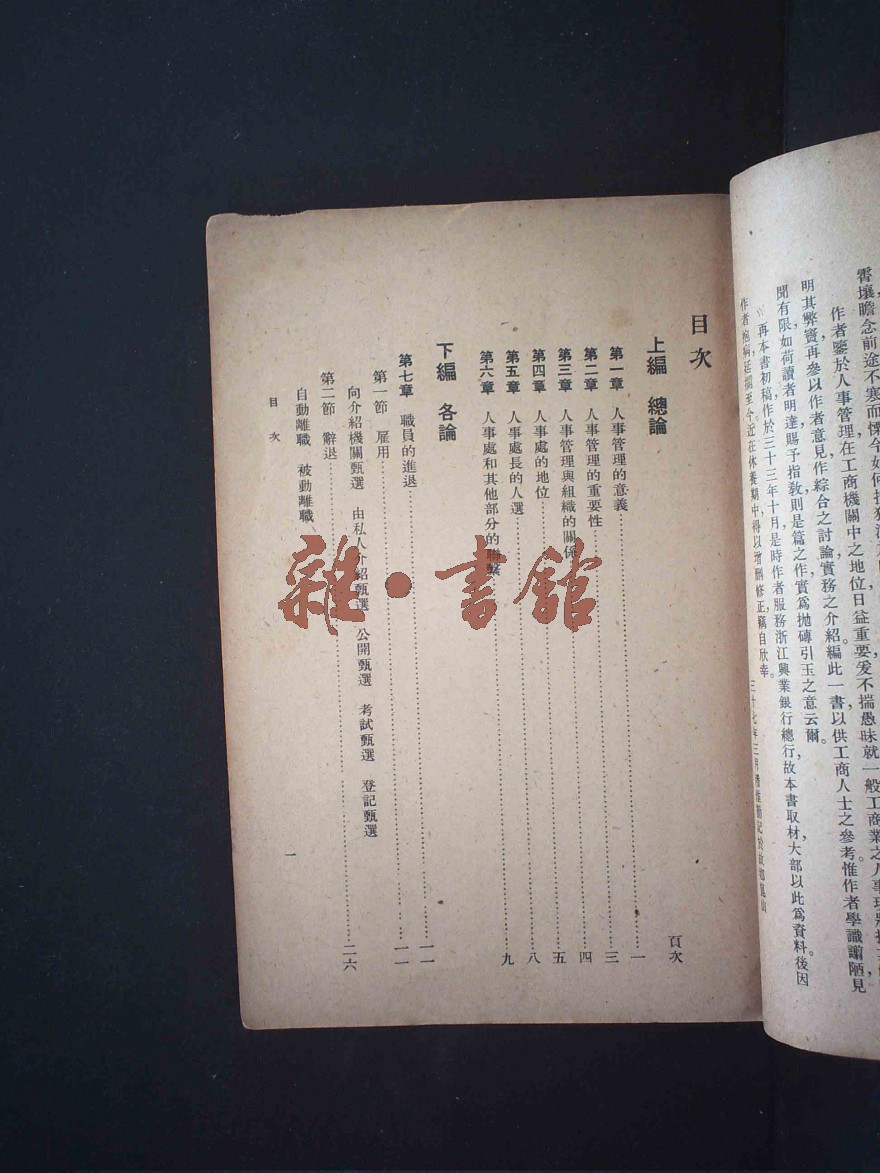 霄壤瞻念前途不寒而慄今如何
作者鑒於人事管理在工商機關中之地位日益重要爰不揣愚昧就一般工商業之人事
明其弊竇再參以作者意見作綜合之討論實務之介紹編此一書以供工商人士之參考惟作者學識譾陋見
聞有限，如荷讀者明達賜予指教則是篇之作實爲拋磚引玉之意云爾。
再本書初稿作於三十三年十月是時作者服務浙江興業銀行總行，故本書取材，大部以此爲資料後因
作者抱病延擱至今近在休養期中，得以增刪修正，竊自欣幸。
三十七年三月
目次
頁次
上編 總論
第一章 人事管理的意義 一
第二章 人事管理的重要性 三
第三章 人事管理與組織的關係 四
第四章 人事處的地位 五
第五章 人事處長的人選 八
第六章 人事處和其他部分的聯繫 九
下編 各論
第七章 職員的進退 一一
第一節 雇用 一一
向介紹機關甄選 由私人介紹甄選 公開甄選 考試甄選 登記甄選
第二節 辭退 二六
自動離職 被動離職
目次
一
雜·書館